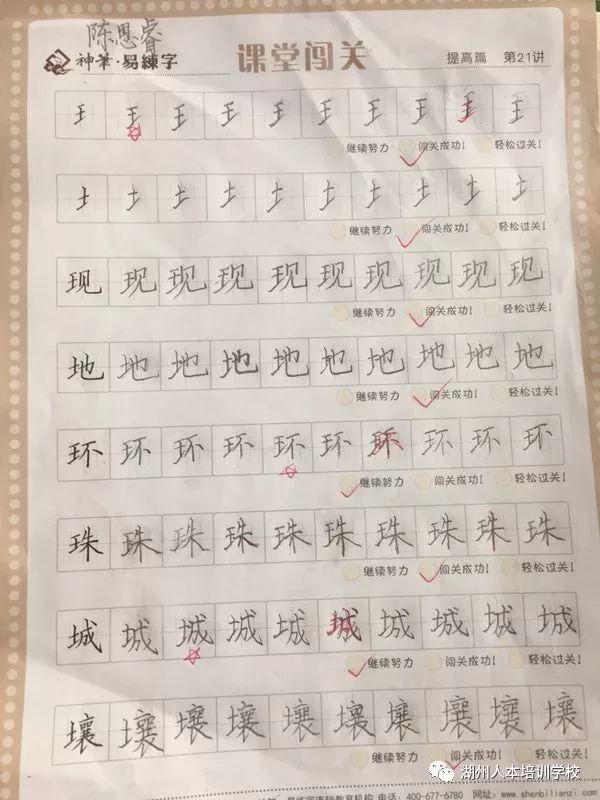 陈思睿
神笔·易練字 课堂闯关 提高篇 第21讲
王 王 王 王 王 王 王 王 王 王
继续努力 闯关成功! 轻松过关!
土 土 土 土 土 土 土 土 土 土
继续努力 闯关成功! 轻松过关!
现 现 现 现 现 现 现 现 现 现
继续努力 闯关成功! 轻松过关!
地 地 地 地 地 地 地 地 地 地
继续努力 闯关成功! 轻松过关!
环 环 环 环 环 环 环 环 环 环
继续努力 闯关成功! 轻松过关!
珠 珠 珠 珠 珠 珠 珠 珠 珠 珠
继续努力 闯关成功! 轻松过关!
城 城 城 城 城 城 城 城 城 城
继续努力 闯关成功! 轻松过关!
壤 壤 壤 壤 壤 壤 壤 壤 壤 壤
继续努力 闯关成功! 轻松过关!
电话:400-677-6780 网址:www.shenbilianzi.com
湖州人本培训学校